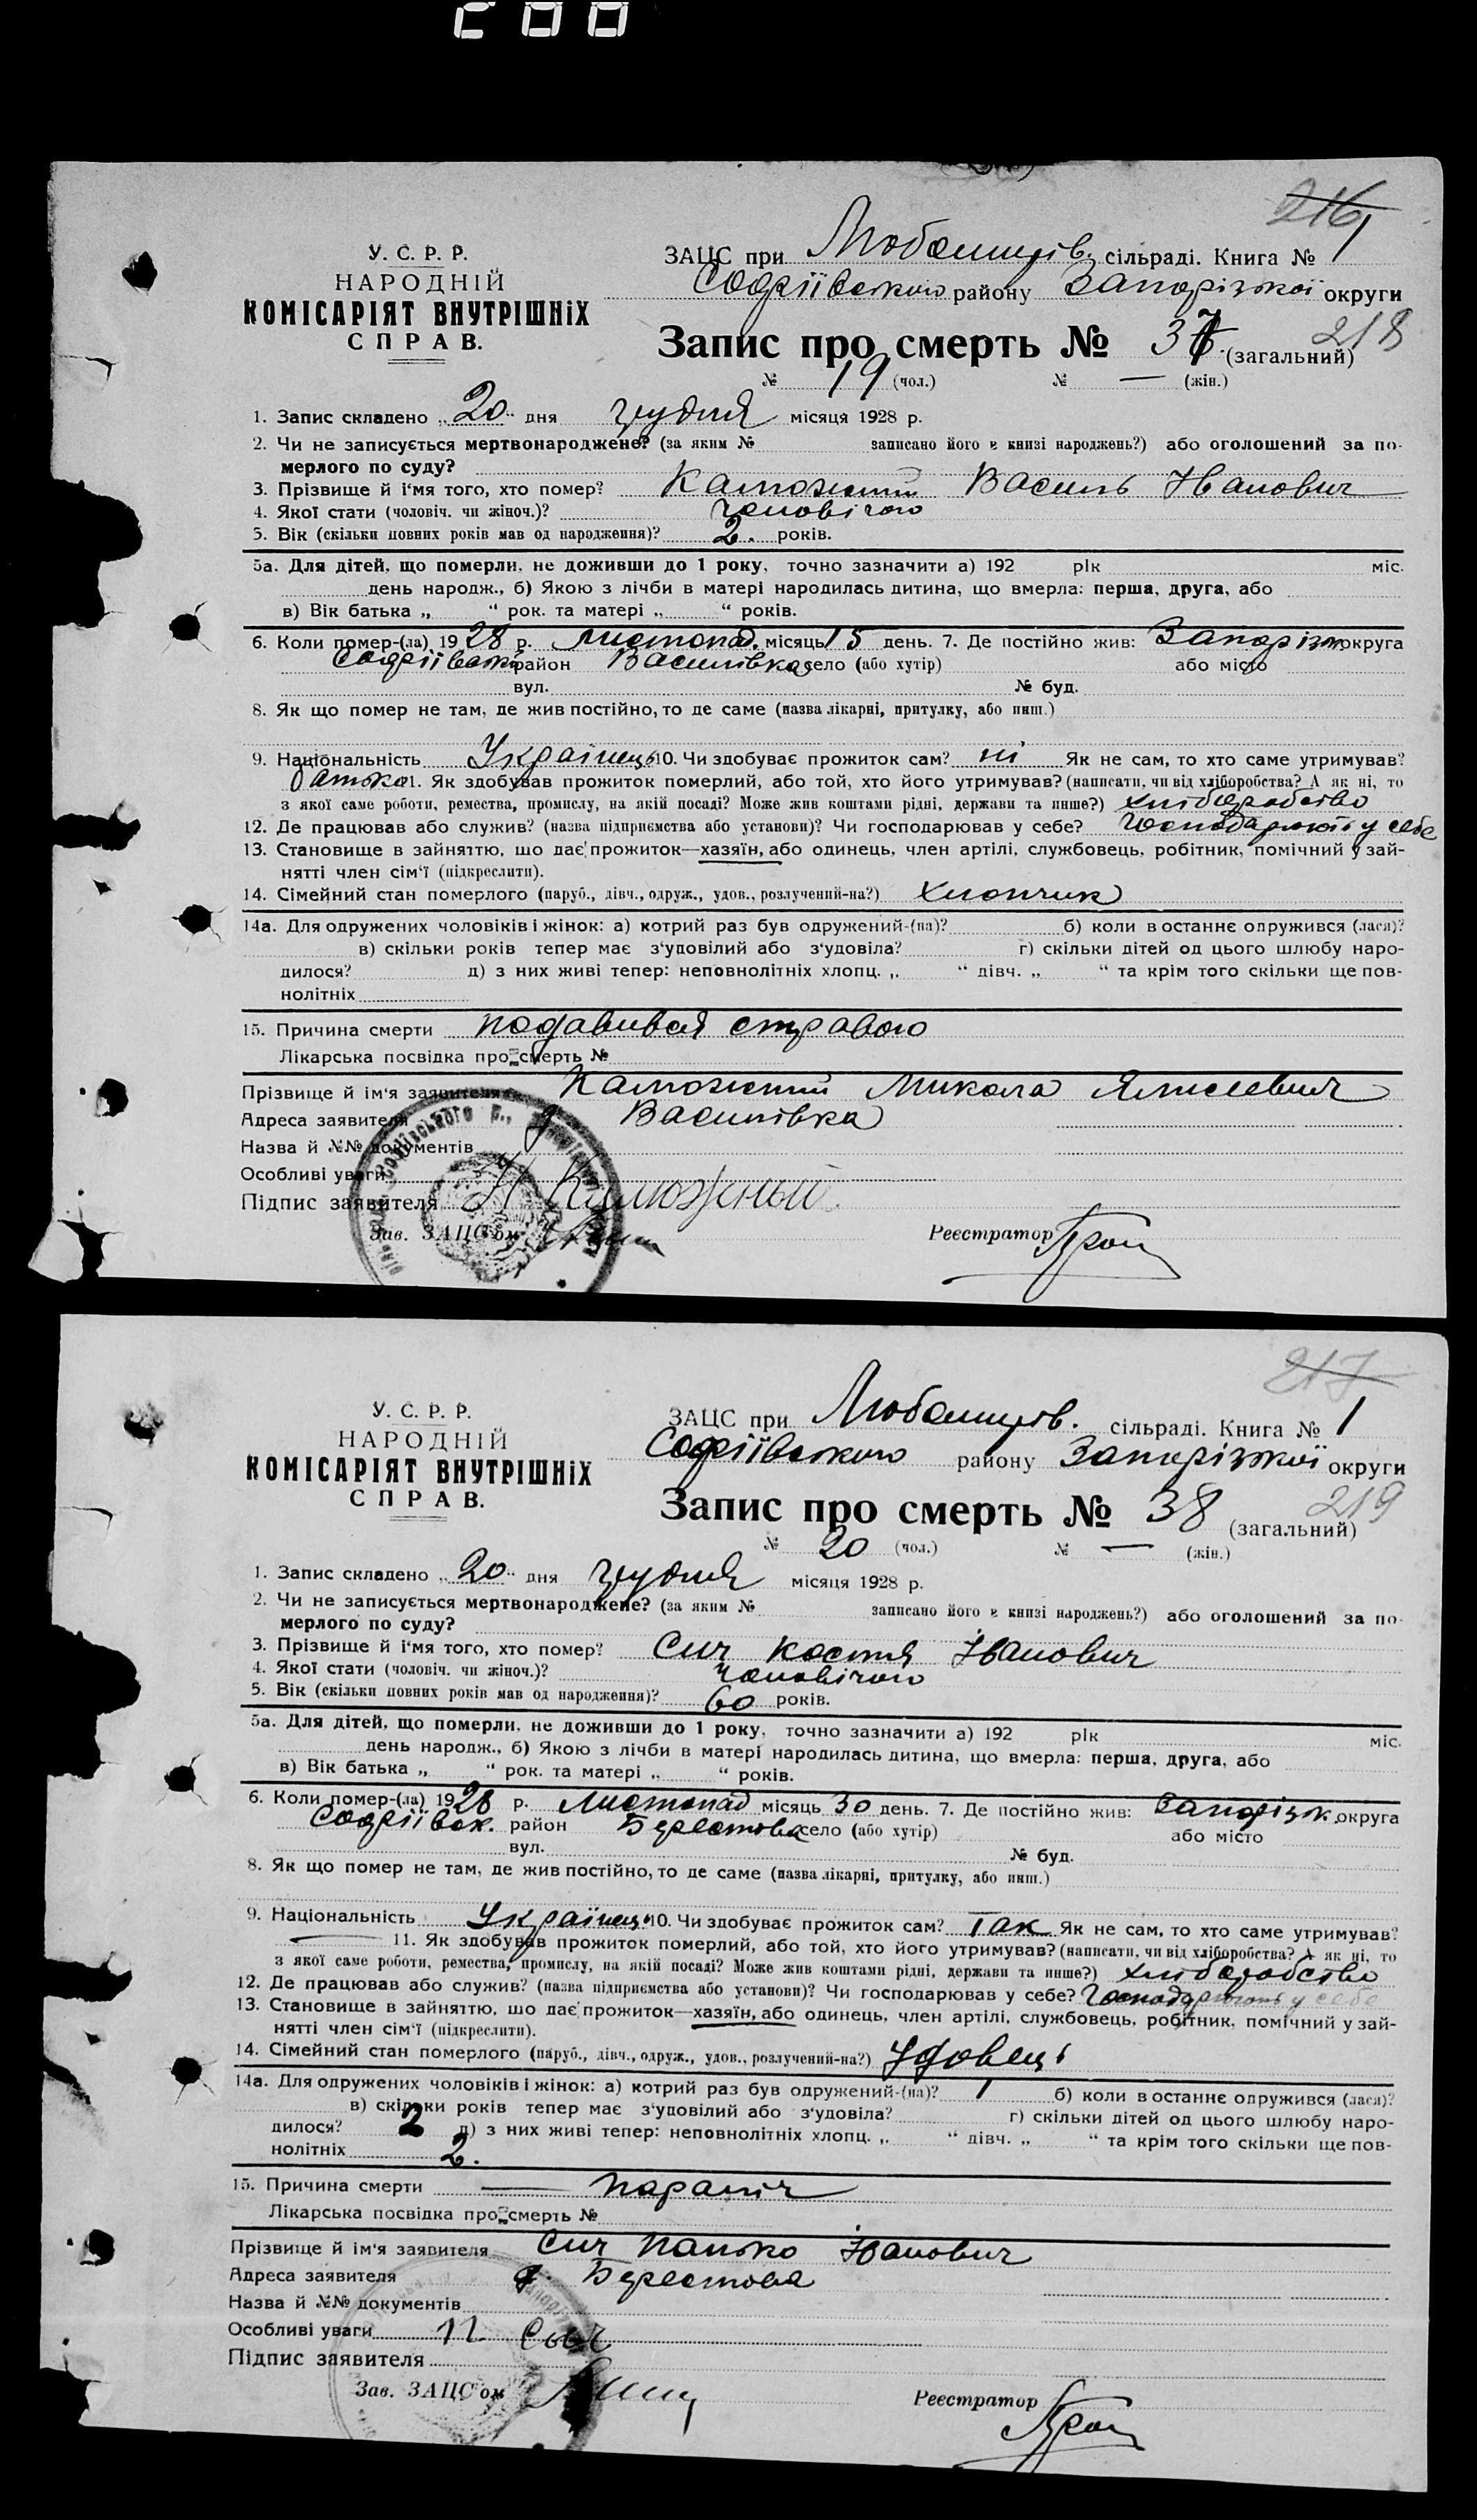 216
У. С. Р. Р.
НАРОДНІЙ
КОМІСАРІЯТ ВНУТРІШНІХ
СПРАВ.
ЗАЦС при Любомирів. сільраді. Книга № 1
Софіївського району Запорізької округи
218
Запис про смерть № 37 (загальний)
№ 19 (чол.) № — (жін.)
1. Запис складено „20“ дня грудня місяця 1928 р.
2. Чи не записується мертвонароджене? (за яким № записано його в книзі народжень?) або оголошений за по-
мерлого по суду?
3. Прізвище й і'мя того, хто помер? Калюжний Василь Іванович
4. Якої стати (чоловіч. чи жіноч.)? чоловічого
5. Вік (скільки повних років мав од народження)? 2. років.
5а. Для дітей, що померли, не доживши до 1 року, точно зазначити а) 192 рік міс.
день народж., б) Якою з лічби в матері народилась дитина, що вмерла: перша, друга, або
в) Вік батька „ “ рок. та матері „ “ років.
6. Коли помер-(ла) 1928 р. листопад. місяць 15 день. 7. Де постійно жив: Запорізьк. округа
Софіївськ. район Василівка село (або хутір) або місто
вул. № буд.
8. Як що помер не там, де жив постійно, то де саме (назва лікарні, притулку, або инш.)
9. Національність Українець 10. Чи здобуває прожиток сам? ні Як не сам, то хто саме утримував?
батько 11. Як здобував прожиток померлий, або той, хто його утримував? (написати, чи від хліборобства? А як ні, то
з якої саме роботи, ремества, промислу, на якій посаді? Може жив коштами рідні, держави та инше?) хліборобство
12. Де працював або служив? (назва підприємства або установи)? Чи господарював у себе? Господарють у себе
13. Становище в зайняттю, шо дає прожиток—хазяїн, або одинець, член артілі, службовець, робітник, помічний у зай-
нятті член сім'ї (підкреслити).
14. Сімейний стан померлого (паруб., дівч., одруж., удов., розлучений-на?) хлопчик
14а. Для одружених чоловіків і жінок: а) котрий раз був одружений-(на)? б) коли в останнє одружився (лася)?
в) скільки років тепер має з'удовілий або з'удовіла? г) скільки дітей од цього шлюбу наро-
дилося? д) з них живі тепер: неповнолітніх хлопц. „ “ дівч. „ “ та крім того скільки ще пов-
нолітніх
15. Причина смерти подавився стравою
Лікарська посвідка про смерть №
Прізвище й ім'я заявителя Калюжний Микола
Адреса заявителя д Василівка
Назва й №№ документів
Особливі уваги
Підпис заявителя Н Калюжный
Зав. ЗАЦС'ом Реєстратор
217
У. С. Р. Р.
НАРОДНІЙ
КОМІСАРІЯТ ВНУТРІШНІХ
СПРАВ.
ЗАЦС при Любомирів. сільраді. Книга № 1
Софіївського району Запорізької округи
219
Запис про смерть № 38 (загальний)
№ 20 (чол.) № — (жін.)
1. Запис складено „20“ дня грудня місяця 1928 р.
2. Чи не записується мертвонароджене? (за яким № записано його в книзі народжень?) або оголошений за по-
мерлого по суду?
3. Прізвище й і'мя того, хто помер? Сич Костя Іванович
4. Якої стати (чоловіч. чи жіноч.)? чоловічого
5. Вік (скільки повних років мав од народження)? 60 років.
5а. Для дітей, що померли, не доживши до 1 року, точно зазначити а) 192 рік міс.
день народж., б) Якою з лічби в матері народилась дитина, що вмерла: перша, друга, або
в) Вік батька „ “ рок. та матері „ “ років.
6. Коли помер-(ла) 1928 р. листопад місяць 30 день. 7. Де постійно жив: Запорізьк. округа
Софіївськ. район Берестова село (або хутір) або місто
вул. № буд.
8. Як що помер не там, де жив постійно, то де саме (назва лікарні, притулку, або инш.)
9. Національність Українець 10. Чи здобуває прожиток сам? Так Як не сам, то хто саме утримував?
— 11. Як здобував прожиток померлий, або той, хто його утримував? (написати, чи від хліборобства? А як ні, то
з якої саме роботи, ремества, промислу, на якій посаді? Може жив коштами рідні, держави та инше?) хліборобство
12. Де працював або служив? (назва підприємства або установи)? Чи господарював у себе? Господарють у себе
13. Становище в зайняттю, шо дає прожиток—хазяїн, або одинець, член артілі, службовець, робітник, помічний у зай-
нятті член сім'ї (підкреслити).
14. Сімейний стан померлого (паруб., дівч., одруж., удов., розлучений-на?) Удовець
14а. Для одружених чоловіків і жінок: а) котрий раз був одружений-(на)? 1 б) коли в останнє одружився (лася)?
в) скільки років тепер має з'удовілий або з'удовіла? г) скільки дітей од цього шлюбу наро-
дилося? 2 д) з них живі тепер: неповнолітніх хлопц. „ “ дівч. „ “ та крім того скільки ще пов-
нолітніх 2.
15. Причина смерти — параліч
Лікарська посвідка про смерть №
Прізвище й ім'я заявителя Сич Панько Іванович
Адреса заявителя д. Берестова
Назва й №№ документів
Особливі уваги П Сыч
Підпис заявителя
Зав. ЗАЦС'ом Реєстратор